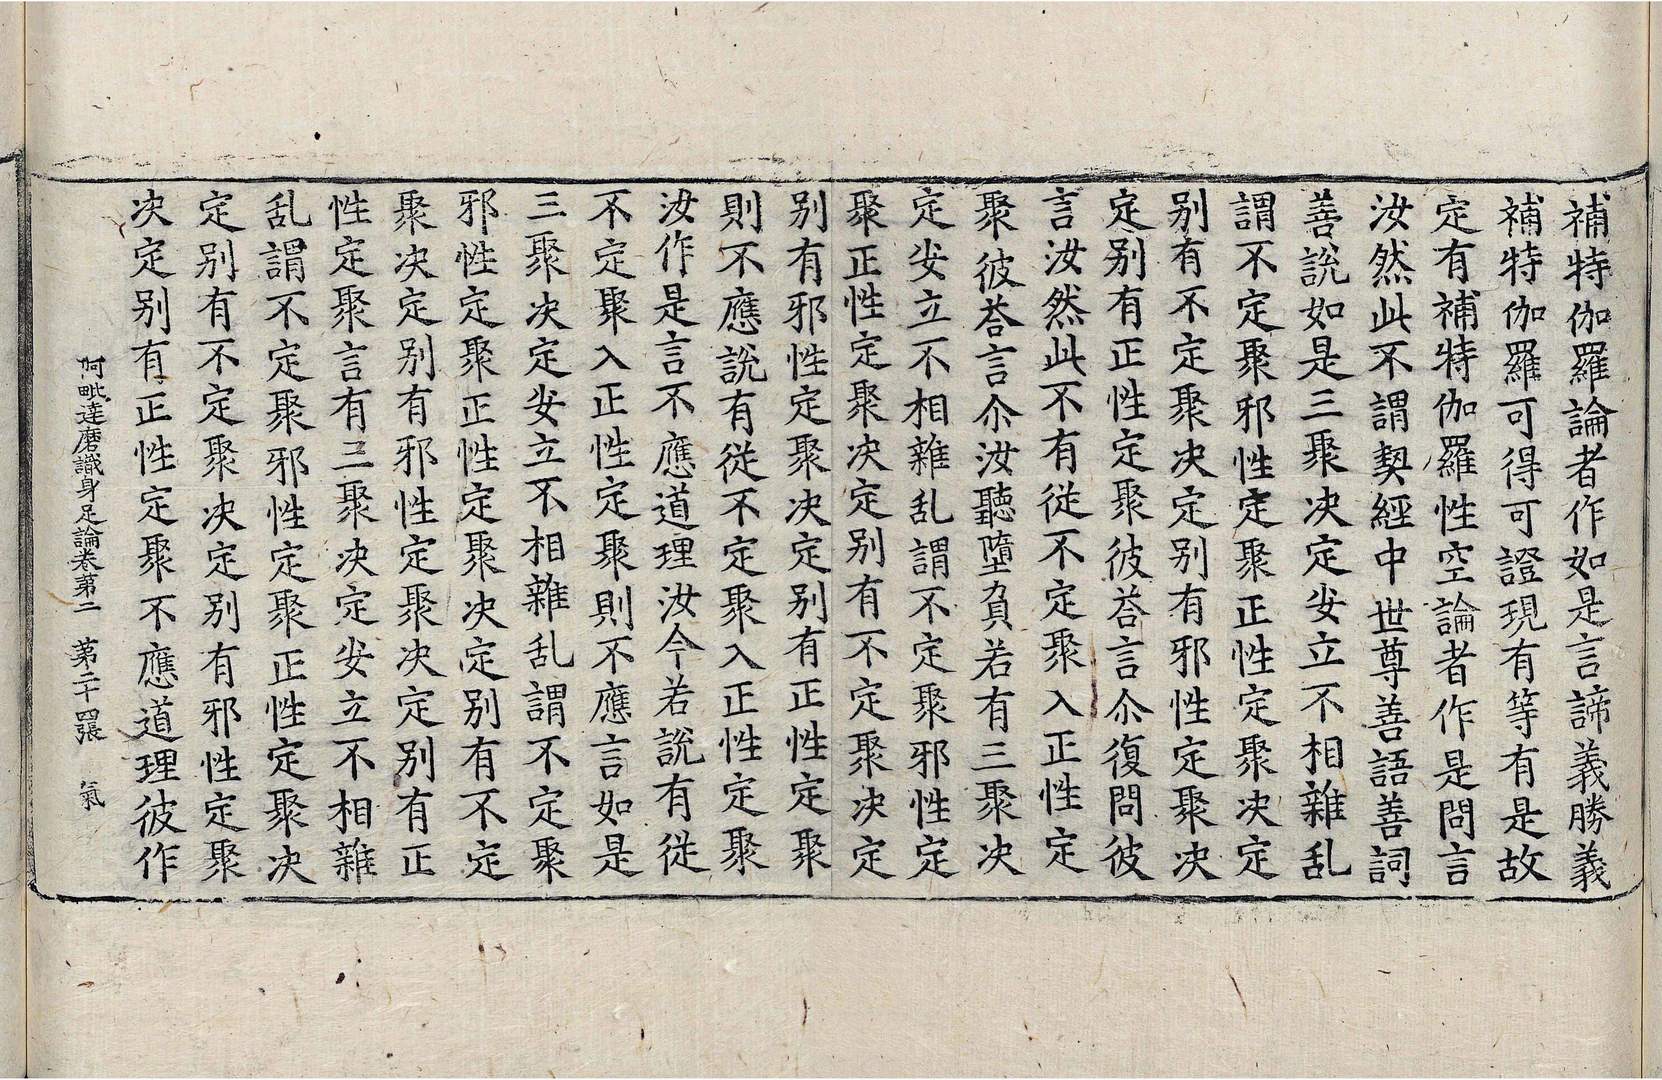 補特伽羅論者作如是言諦義勝義
補特伽羅可得可證現有等有是故
定有補特伽羅性空論者作是問言
汝然此不謂契經中世尊善語善詞
善說如是三聚決定安立不相雜乱
謂不定聚邪性定聚正性定聚决定
别有不定聚决定别有邪性定聚决
定别有正性定聚彼荅言尒復問彼
言汝然此不有從不定聚入正性定
聚彼荅言尒汝聽墮負若有三聚决
定安立不相雜乱謂不定聚邪性定
聚正性定聚决定别有不定聚决定
别有邪性定聚决定别有正性定聚
則不應說有從不定聚入正性定聚
汝作是言不應道理汝今若說有從
不定聚入正性定聚則不應言如是
三聚决定安立不相雜乱謂不定聚
邪性定聚正性定聚决定别有不定
聚决定别有邪性定聚决定别有正
性定聚言有三聚决定安立不相雜
乱謂不定聚邪性定聚正性定聚决
定别有不定聚决定别有邪性定聚
决定别有正性定聚不應道理彼作
阿毗達磨識身足論卷第二　第二十四張　氣